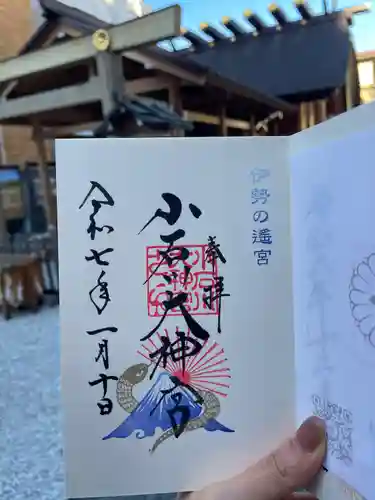 伊勢の遥宮
奉拝
小石川大神宮
令和七年一月十日